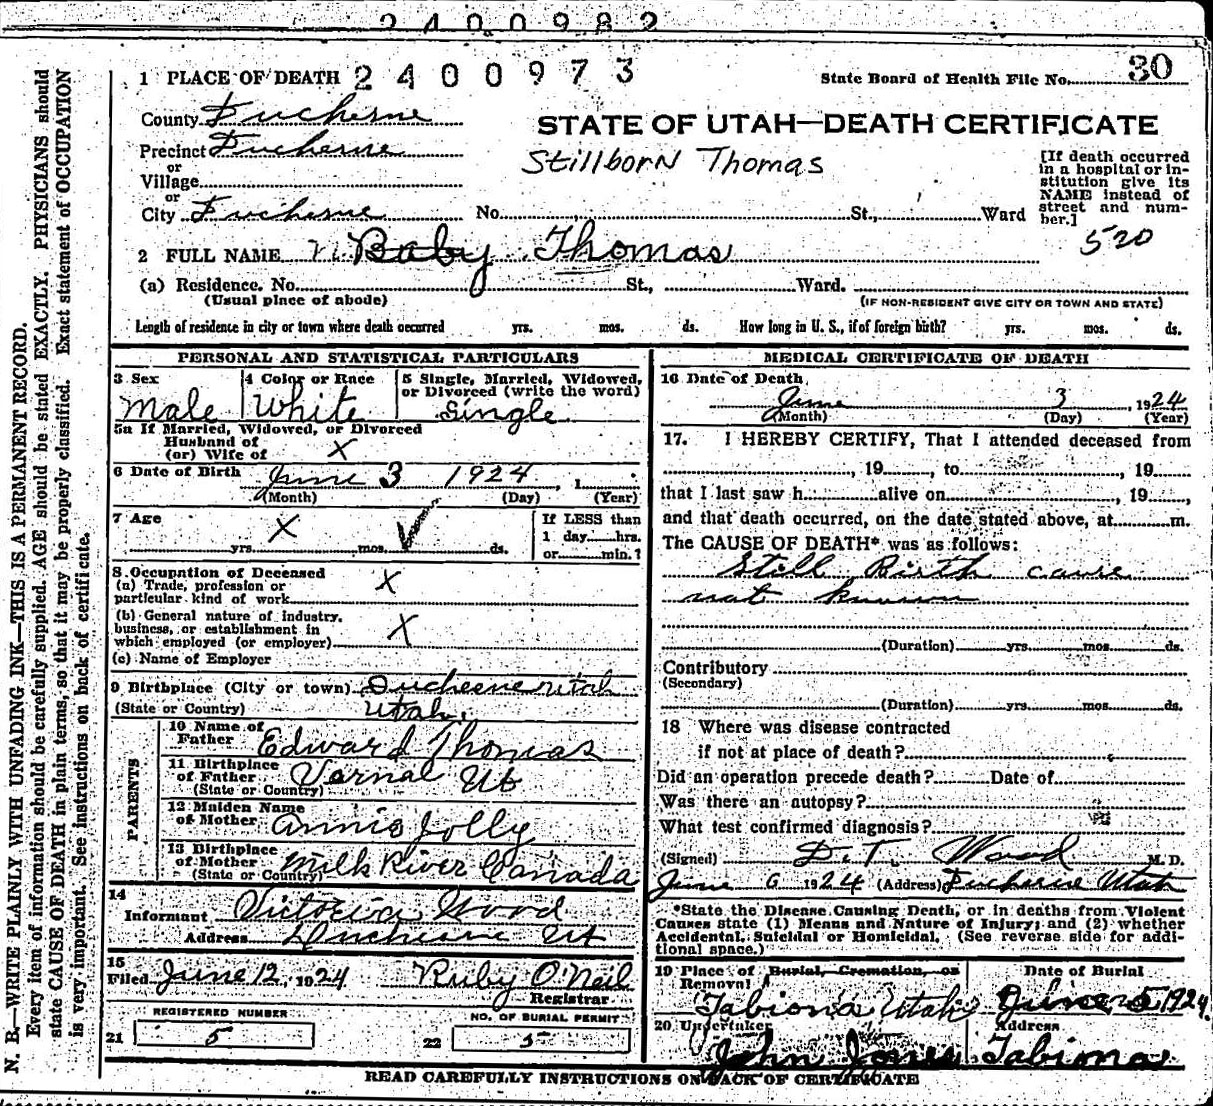 2400982
1 PLACE OF DEATH 2400973 State Board of Health File No. 30
County Duchesne
STATE OF UTAH—DEATH CERTIFICATE
Precinct Duchesne
Stillborn Thomas
or
Village
or
City Duchesne No. St., Ward
[If death occurred in a hospital or in-
stitution give its
NAME instead of
street and num-
ber.]
520
2 FULL NAME Baby Thomas
(a) Residence. No. St., Ward.
(Usual place of abode) (IF NON-RESIDENT GIVE CITY OR TOWN AND STATE)
Length of residence in city or town where death occurred yrs. mos. ds. How long in U. S., if of foreign birth? yrs. mos. ds.
PERSONAL AND STATISTICAL PARTICULARS
3 Sex 4 Color or Race 5 Single, Married, Widowed,
or Divorced (write the word)
Male White Single
5a If Married, Widowed, or Divorced
Husband of
(or) Wife of X
6 Date of Birth June 3 1924, 1
(Month) (Day) (Year)
7 Age X yrs. mos. ds.
If LESS than
1 day hrs.
or min.?
8 Occupation of Deceased
(a) Trade, profession or
particular kind of work X
(b) General nature of industry,
business, or establishment in
which employed (or employer) X
(c) Name of Employer
9 Birthplace (City or town) Duchesne Utah
(State or Country) Utah.
PARENTS
10 Name of
Father Edward Thomas
11 Birthplace
of Father Vernal Ut
(State or Country)
12 Maiden Name
of Mother Annie Jolly
13 Birthplace
of Mother Milk River Canada
(State or Country)
14
Informant Victoria Wood
Address Duchesne Ut
15
Filed June 12, 1924 Ruby O'Neil
Registrar
REGISTERED NUMBER NO. OF BURIAL PERMIT
21 5 22 5
MEDICAL CERTIFICATE OF DEATH
16 Date of Death
June 3, 1924
(Month) (Day) (Year)
17. I HEREBY CERTIFY, That I attended deceased from
, 19 , to , 19
that I last saw h alive on , 19 ,
and that death occurred, on the date stated above, at m.
The CAUSE OF DEATH* was as follows:
Still Birth cause
not known
(Duration) yrs. mos. ds.
Contributory
(Secondary)
(Duration) yrs. mos. ds.
18 Where was disease contracted
if not at place of death?
Did an operation precede death? Date of
Was there an autopsy?
What test confirmed diagnosis?
(Signed) D. T. Wood M. D.
June 6 1924 (Address) Duchesne Utah
*State the Disease Causing Death, or in deaths from Violent
Causes state (1) Means and Nature of Injury; and (2) whether
Accidental, Suicidal or Homicidal. (See reverse side for addi-
tional space.)
19 Place of Burial, Cremation, or Date of Burial
Removal
Tabiona Utah June 5 1924.
20 Undertaker Address
John Jones Tabiona
READ CAREFULLY INSTRUCTIONS ON BACK OF CERTIFICATE
N. B.—WRITE PLAINLY WITH UNFADING INK—THIS IS A PERMANENT RECORD.
Every item of information should be carefully supplied. AGE should be stated EXACTLY. PHYSICIANS should
state CAUSE OF DEATH in plain terms, so that it may be properly classified. Exact statement of OCCUPATION
is very important. See instructions on back of certificate.